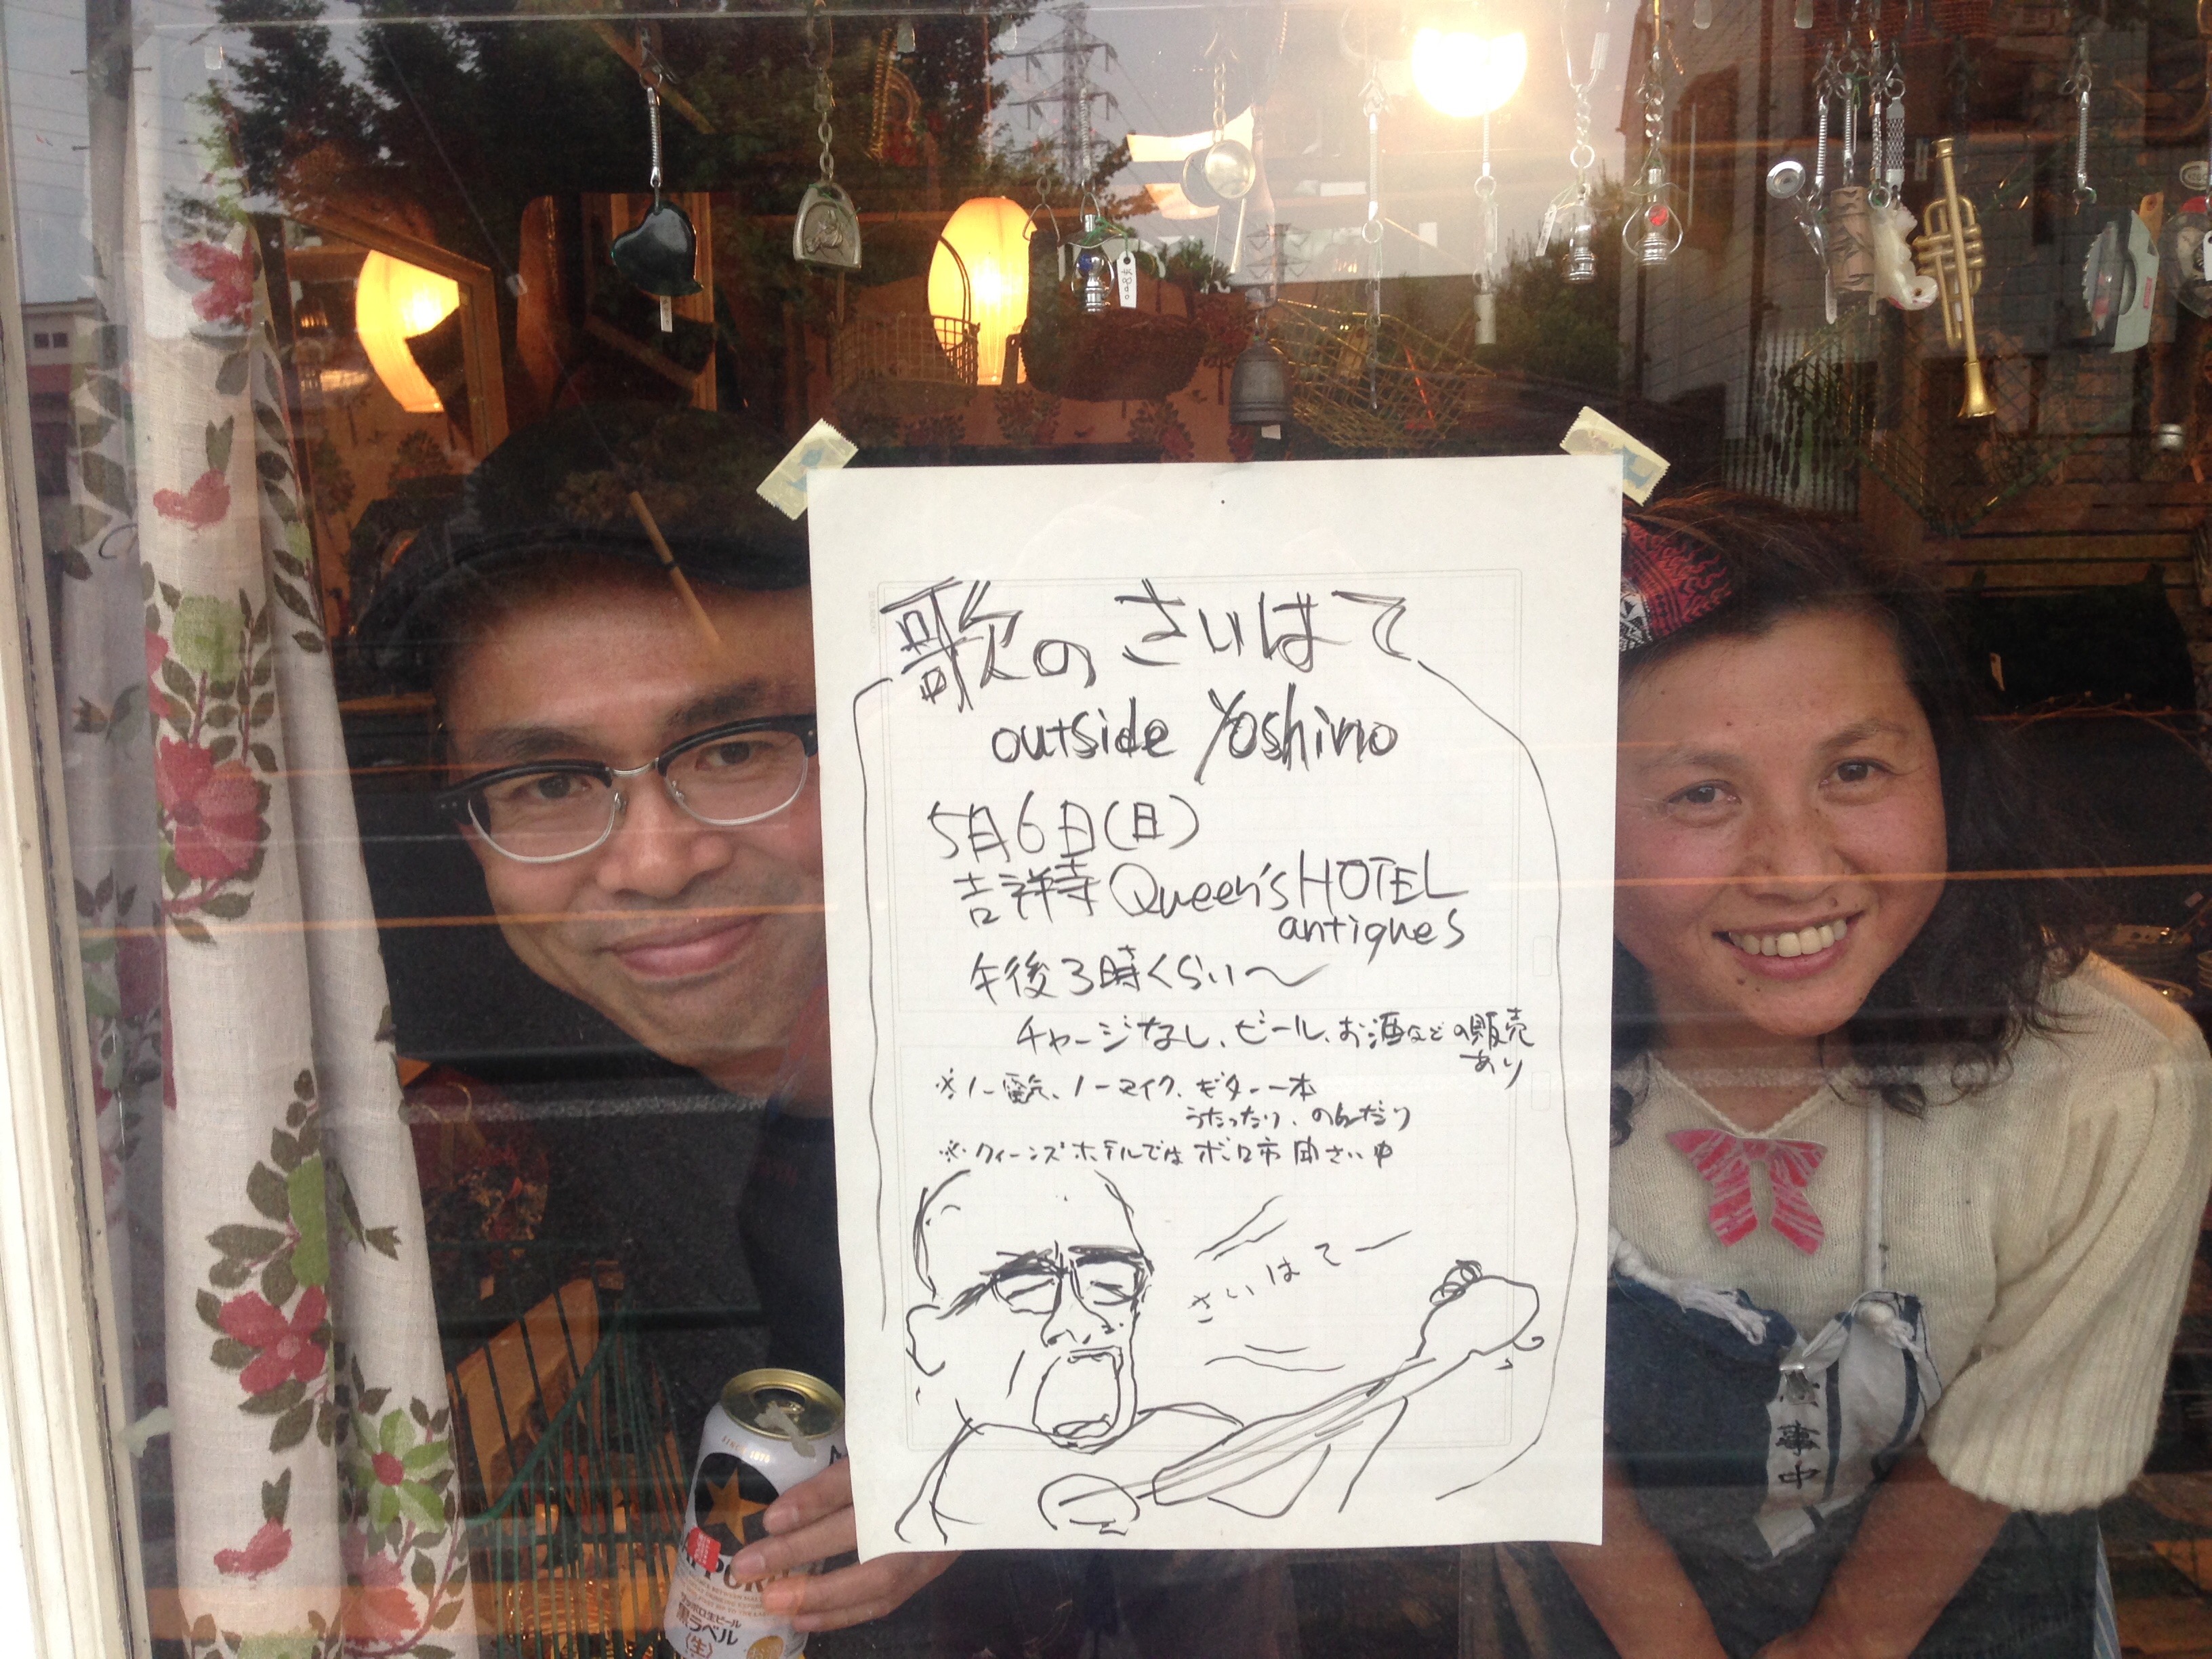 歌のさいはて
outside Yoshino
5月6日(日)
吉祥寺 Queen's HOTEL
antiques
午後3時くらい〜
チャージなし、ビール、お酒などの販売
あり
※ノー電気、ノーマイク、ギター一本
うたったり、のんだり
※クィーンズホテルではボロ市開さい中
さいはてー
SINCE 1876
サッポロ生ビール
黒ラベル
〈生〉
事中